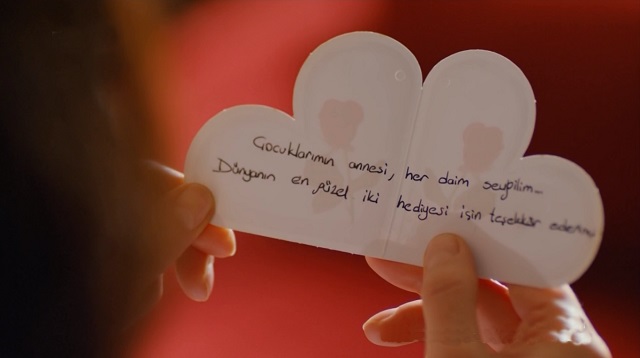 Çocuklarımın annesi, her daim sevgilim...
Dünyanın en güzel iki hediyesi için teşekkür ederim